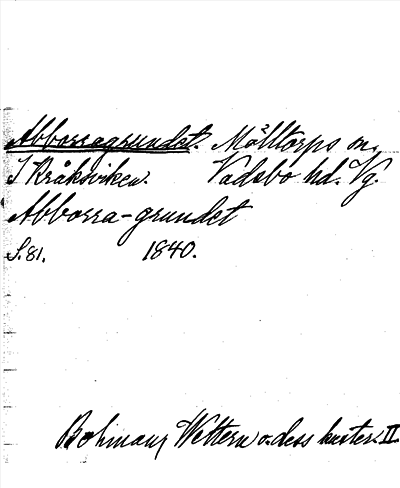 Abborragrundet. Mölltorps sn.
I Kråksviken. Vadsbo hd. Vg.
Abborra-grundet
S. 81. 1840.
Bohman, Wettern o. dess kuster. II